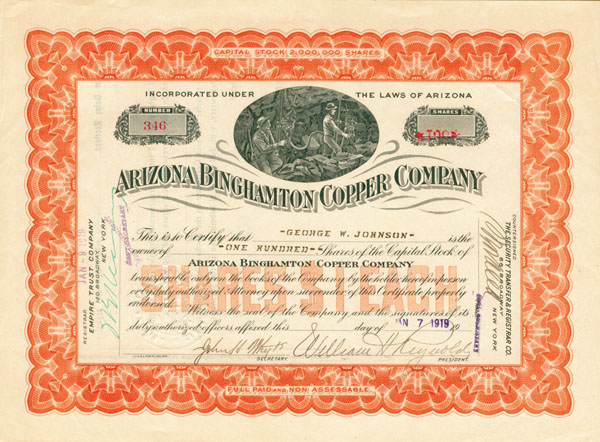 CAPITAL STOCK 2,000,000 SHARES
INCORPORATED UNDER THE LAWS OF ARIZONA
NUMBER
346
SHARES
*100*
ARIZONA BINGHAMTON COPPER COMPANY
This is to Certify that -GEORGE W. JOHNSON- is the
owner of -ONE HUNDRED- Shares of the Capital Stock of
ARIZONA BINGHAMTON COPPER COMPANY
transferable only on the books of the Company by the holder hereof in person
or by duly authorized Attorney upon surrender of this Certificate properly
endorsed.
Witness the seal of the Company and the signatures of its
duly authorized officers affixed this day of JAN 7 1919 19
SECRETARY.
William H Reynolds
PRESIDENT.
FULL PAID AND NON ASSESSABLE.
REGISTRAR
EMPIRE TRUST COMPANY
120 BROADWAY, NEW YORK.
COUNTERSIGNED
THE SECURITY TRANSFER & REGISTRAR CO.
BROADWAY NEW YORK